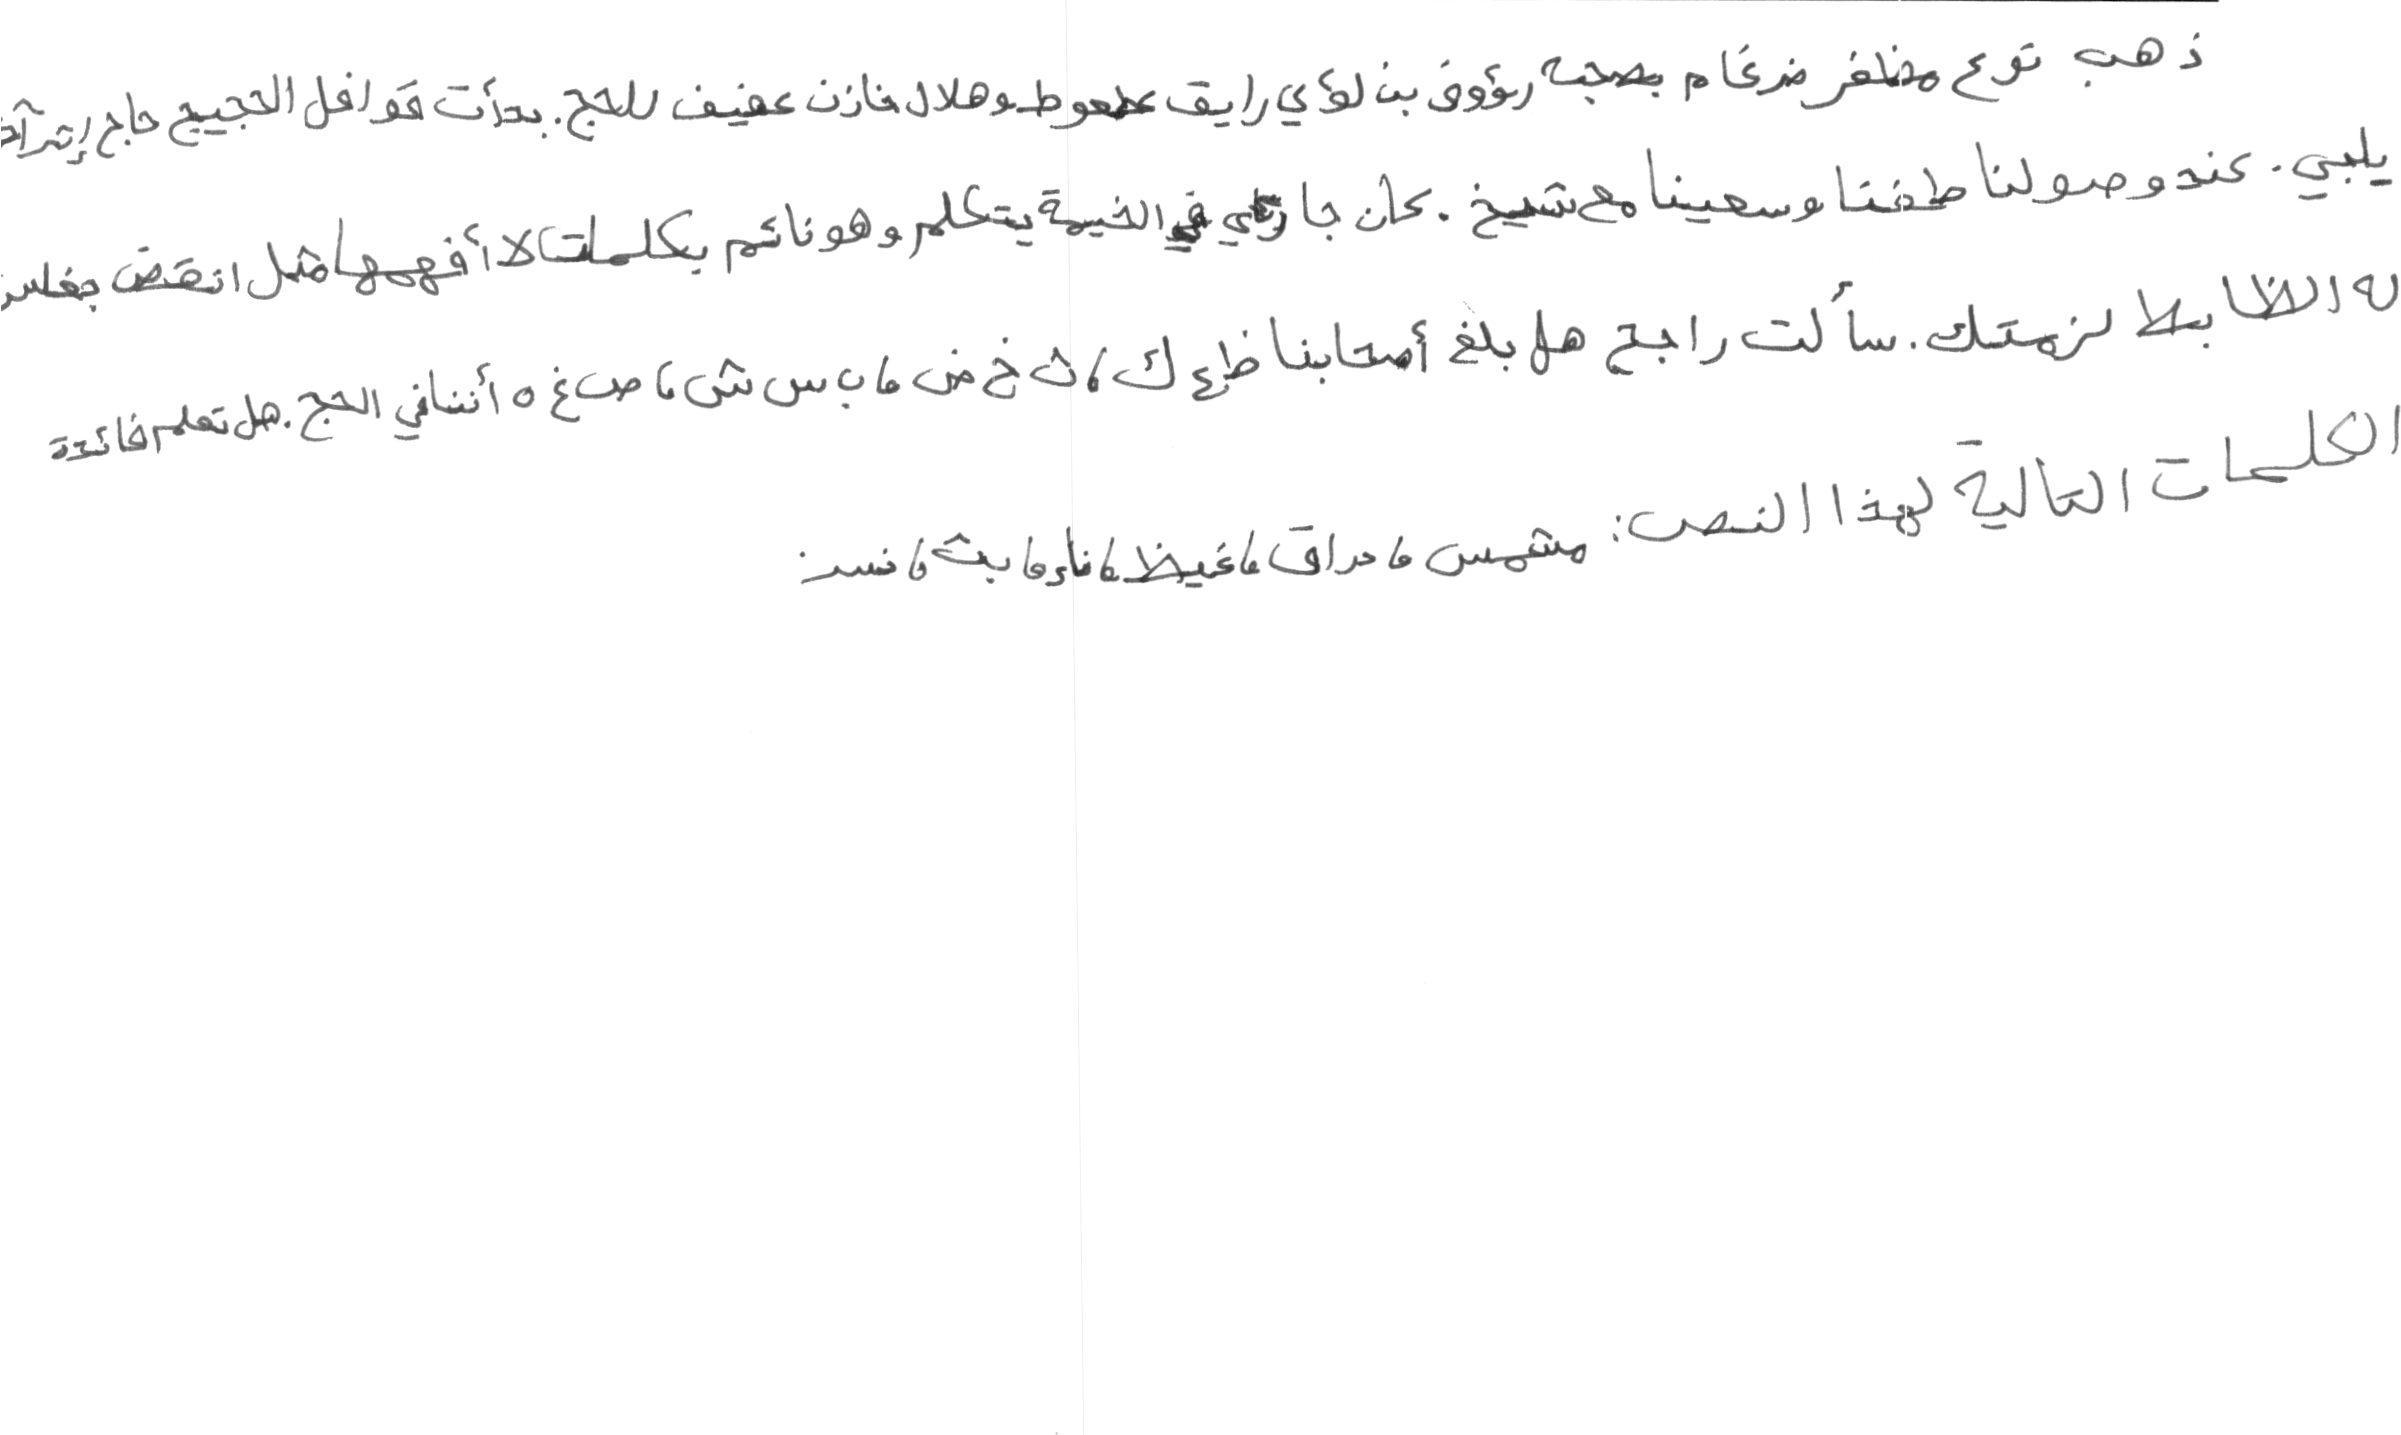 ذهب نوع مظفر ضرغام بصحبه رؤوف بن لؤي رايق عطعوط وهلال خازن عفيف للحج. بدأت قوافل الحجيج حاج إثر آخر
يلبي. عند وصولنا طفنا وسعينا مع شيخ. كان جاري في الخيمة يتكلم وهو نائم بكلمات لا أفهمها مثل انقض بغلس
له الظابط لزمتك. سألت راجح هل بلغ أصحابنا ظ ع ك، ث خ ض، ب س ش، ص غ ه أننا في الحج. هل تعلم فائدة
الكلمات التالية لهذا النص:
مشمس، حراق، غيظ، ناء، بث، نسر